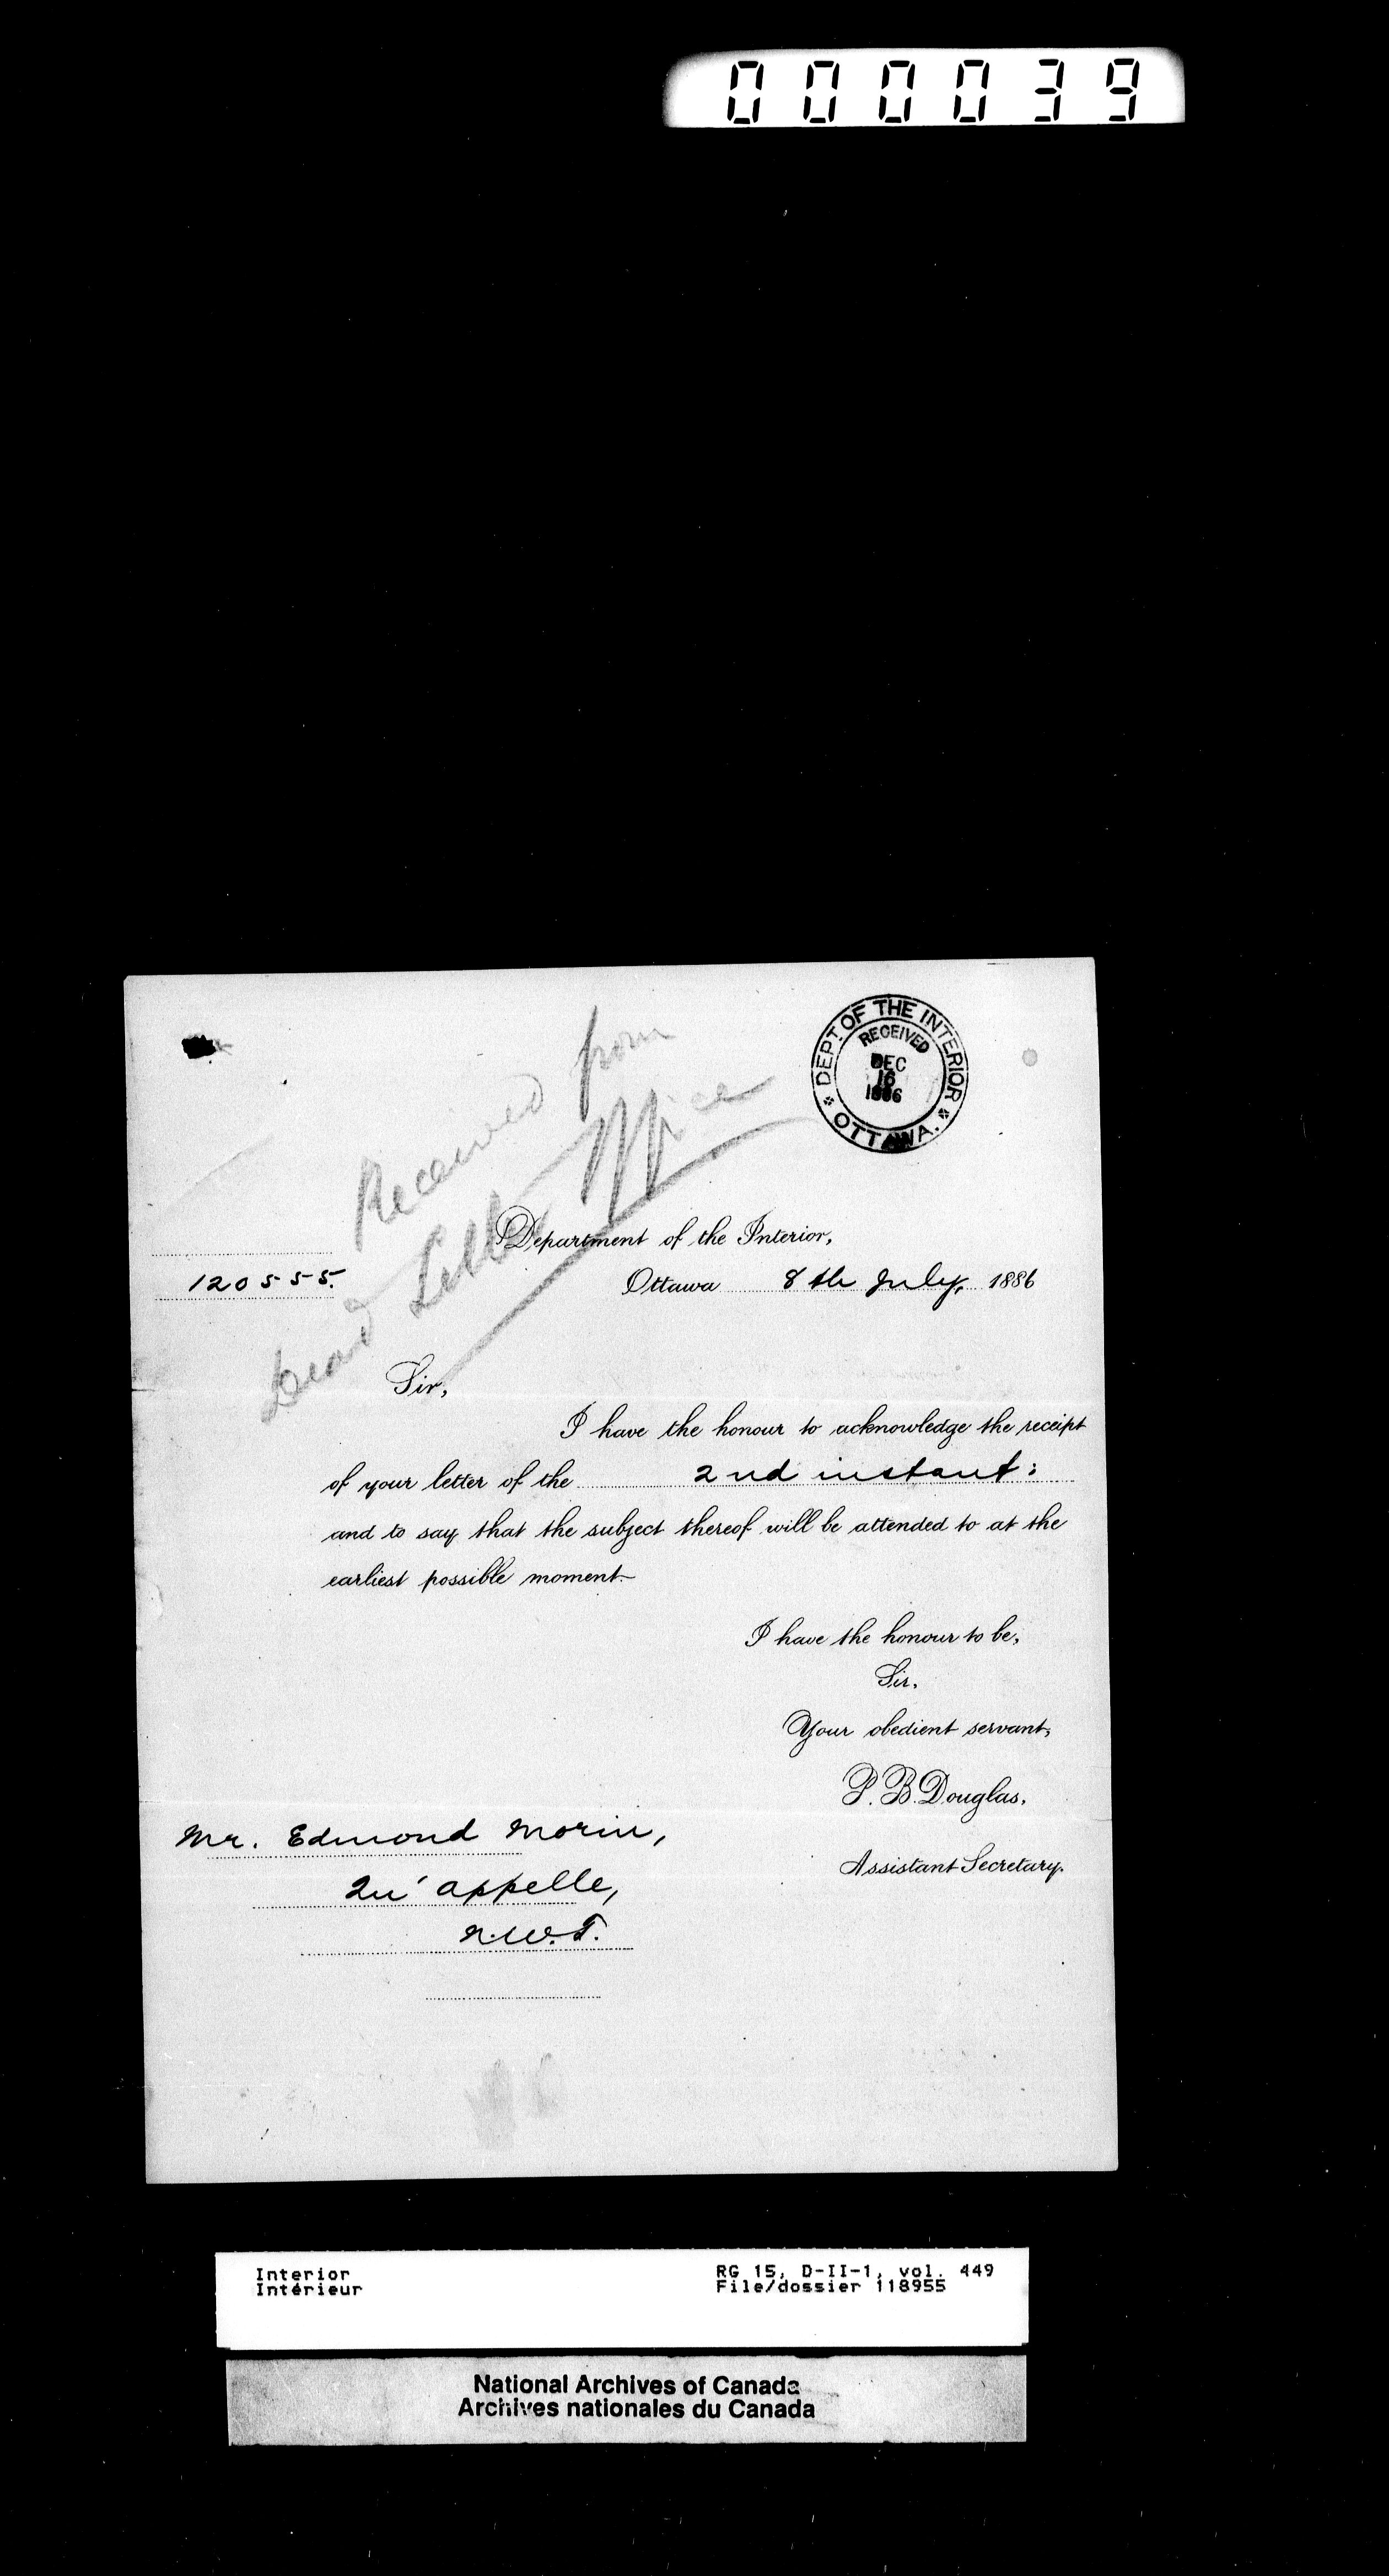 000039
Received from
Dead Letter Office
DEPT. OF THE INTERIOR
RECEIVED
DEC
16
1886
OTTAWA.
Department of the Interior,
120555.
Ottawa 8th July, 1886
Sir,
I have the honour to acknowledge the receipt
of your letter of the 2nd instant:
and to say that the subject thereof will be attended to at the
earliest possible moment.
I have the honour to be,
Sir,
Your obedient servant,
P. B. Douglas,
Assistant Secretary.
Mr. Edmond Morin,
Qu'appelle,
N.W.T.
Interior RG 15, D-II-1, vol. 449
Intérieur File/dossier 118955
National Archives of Canada
Archives nationales du Canada